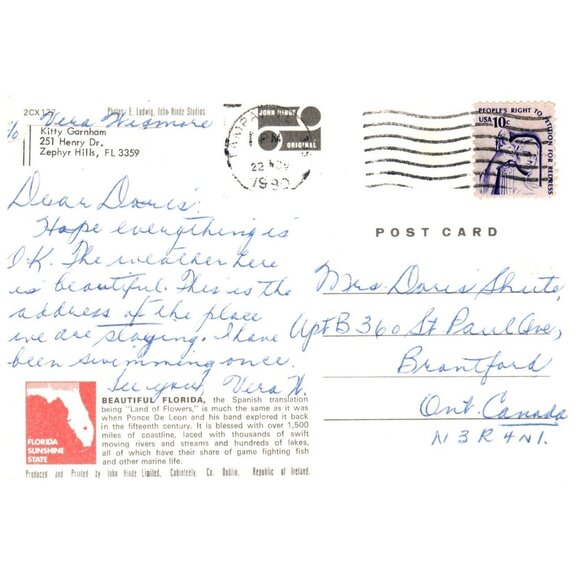 2CX127 Photo: E. Ludwig, John Hinde Studios.
c/o Vera Wismore
Kitty Garnham
251 Henry Dr.
Zephyr Hills, FL 3359
JOHN HINDE
ORIGINAL
TAMPA
PM
22 NOV
PEOPLE'S RIGHT TO PETITION FOR REDRESS
USA 10c
Dear Doris:
Hope everything is
O.K. The weather here
is beautiful. This is the
address of the place
we are staying. I have
been swimming once.
See you, Vera W.
POST CARD
Mrs. Doris Shute,
Apt B 360 St Paul Ave,
Brantford
Ont. Canada
N3R 4N1.
FLORIDA
SUNSHINE
STATE
BEAUTIFUL FLORIDA, the Spanish translation
being "Land of Flowers," is much the same as it was
when Ponce De Leon and his band explored it back
in the fifteenth century. It is blessed with over 1,500
miles of coastline, laced with thousands of swift
moving rivers and streams and hundreds of lakes,
all of which have their share of game fighting fish
and other marine life.
Produced and Printed by John Hinde Limited, Cabinteely, Co. Dublin, Republic of Ireland.